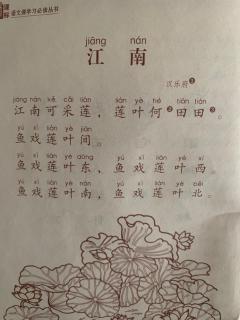 课标
语文课学习必读丛书
jiāng nán
江 南
汉乐府①
jiāng nán kě cǎi lián lián yè hé tián tián
江南可采莲，莲叶何②田田③。
yú xì lián yè jiān
鱼戏莲叶间。
yú xì lián yè dōng yú xì lián yè xī
鱼戏莲叶东，鱼戏莲叶西。
yú xì lián yè nán yú xì lián yè běi
鱼戏莲叶南，鱼戏莲叶北。